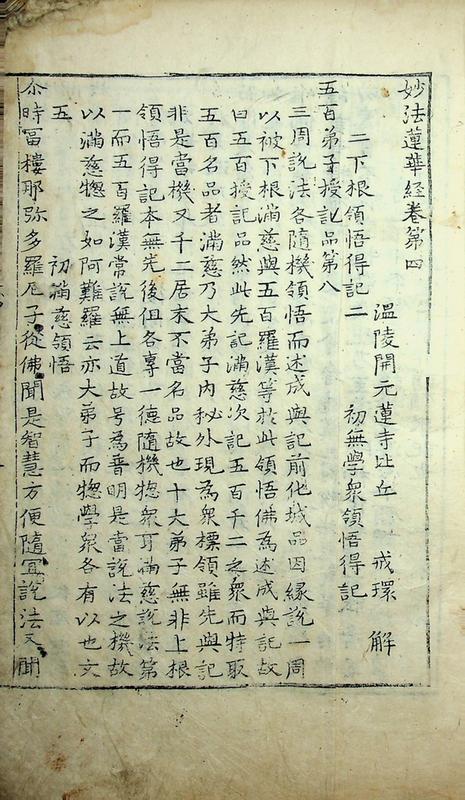 妙法蓮華経卷第四
溫陵開元蓮寺比丘 戒環 解
二下根領悟得記二 初無學衆領悟得記
五百弟子授記品第八
三周說法各隨機領悟而述成與記前化城品因緣說一周
以被下根滿慈與五百羅漢等於此領悟佛為述成與記故
曰五百授記品然此先記滿慈次記五百千二之衆而特取
五百名品者滿慈乃大弟子內秘外現為衆標領雖先與記
非是當機又千二居末不當名品故也十大弟子無非上根
領悟得記本無先後但各專一德隨機揔衆耳滿慈說法第
一而五百羅漢常說無上道故号為普明是當說法之機故
以滿慈揔之如阿難羅云亦大弟子而揔學衆各有以也文
五 初滿慈領悟
尒時冨樓那弥多羅尼子從佛聞是智慧方便隨冝說法又聞